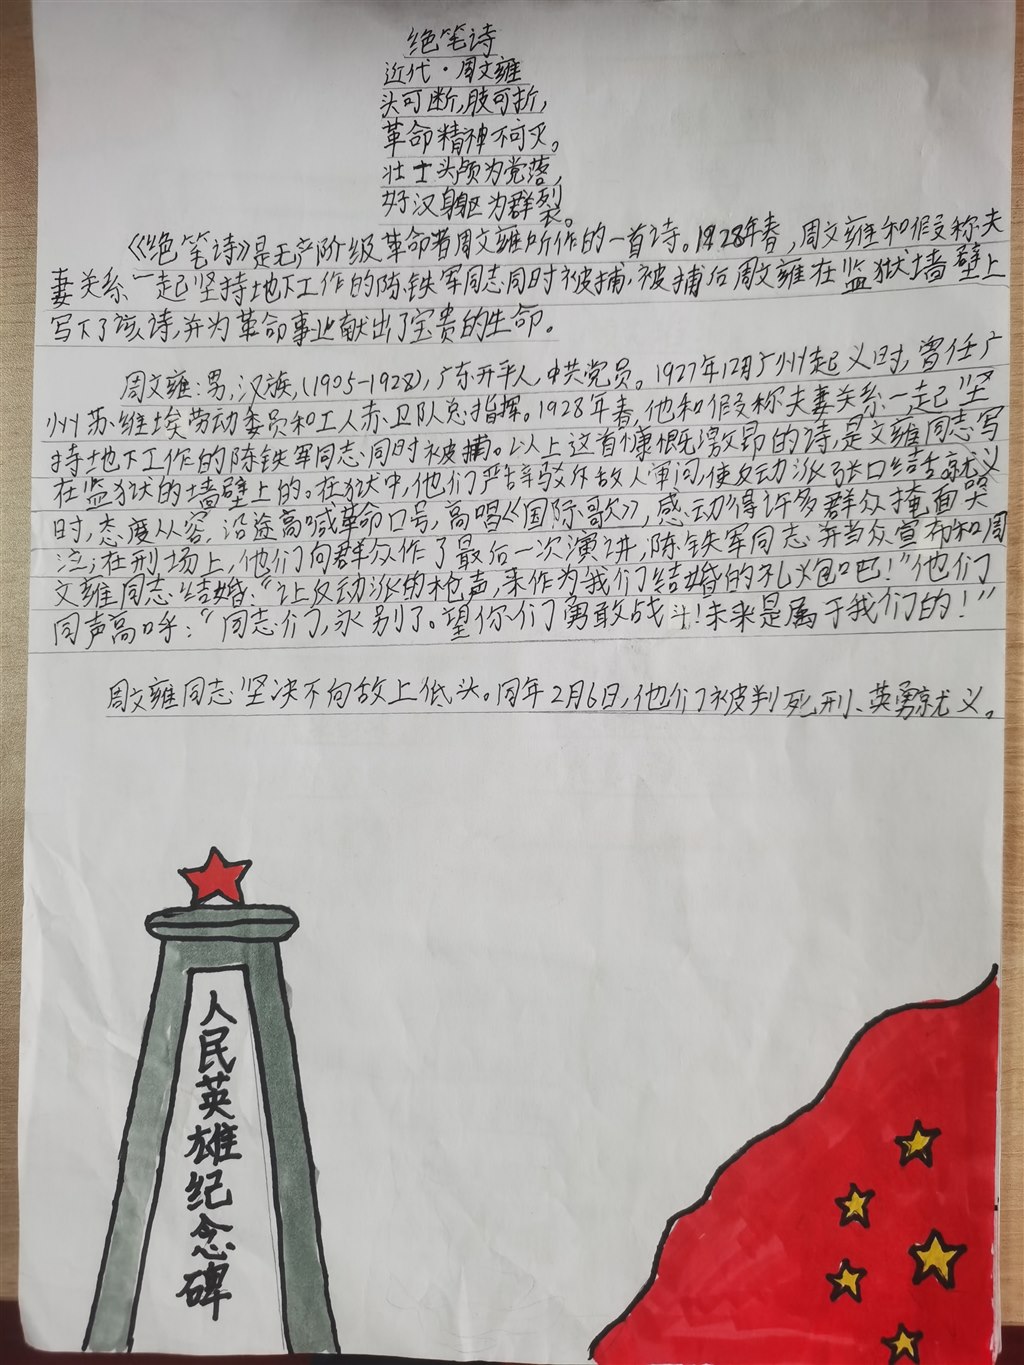 绝笔诗
近代·周文雍
头可断,肢可折,
革命精神不可灭。
壮士头颅为党落,
好汉身躯为群裂。
《绝笔诗》是无产阶级革命者周文雍所作的一首诗。1928年春,周文雍和假称夫
妻关系一起坚持地下工作的陈铁军同志同时被捕,被捕后周文雍在监狱墙壁上
写下了该诗,并为革命事业献出了宝贵的生命。
周文雍:男,汉族,(1905-1928),广东开平人,中共党员。1927年12月广州起义时,曾任广
州苏维埃劳动委员和工人赤卫队总指挥。1928年春,他和假称夫妻关系一起坚
持地下工作的陈铁军同志同时被捕。以上这首慷慨激昂的诗,是文雍同志写
在监狱的墙壁上的。在狱中,他们严辞驳斥敌人审问,使反动派张口结舌就义
时,态度从容,沿途高喊革命口号,高唱《国际歌》,感动得许多群众掩面哭
泣;在刑场上,他们向群众作了最后一次演讲,陈铁军同志并当众宣布和周
文雍同志结婚,“让反动派的枪声,来作为我们结婚的礼炮吧!”他们
同声高呼:“同志们,永别了。望你们勇敢战斗!未来是属于我们的!”
周文雍同志坚决不向敌上低头。同年2月6日,他们被判死刑、英勇就义。
人民英雄纪念碑